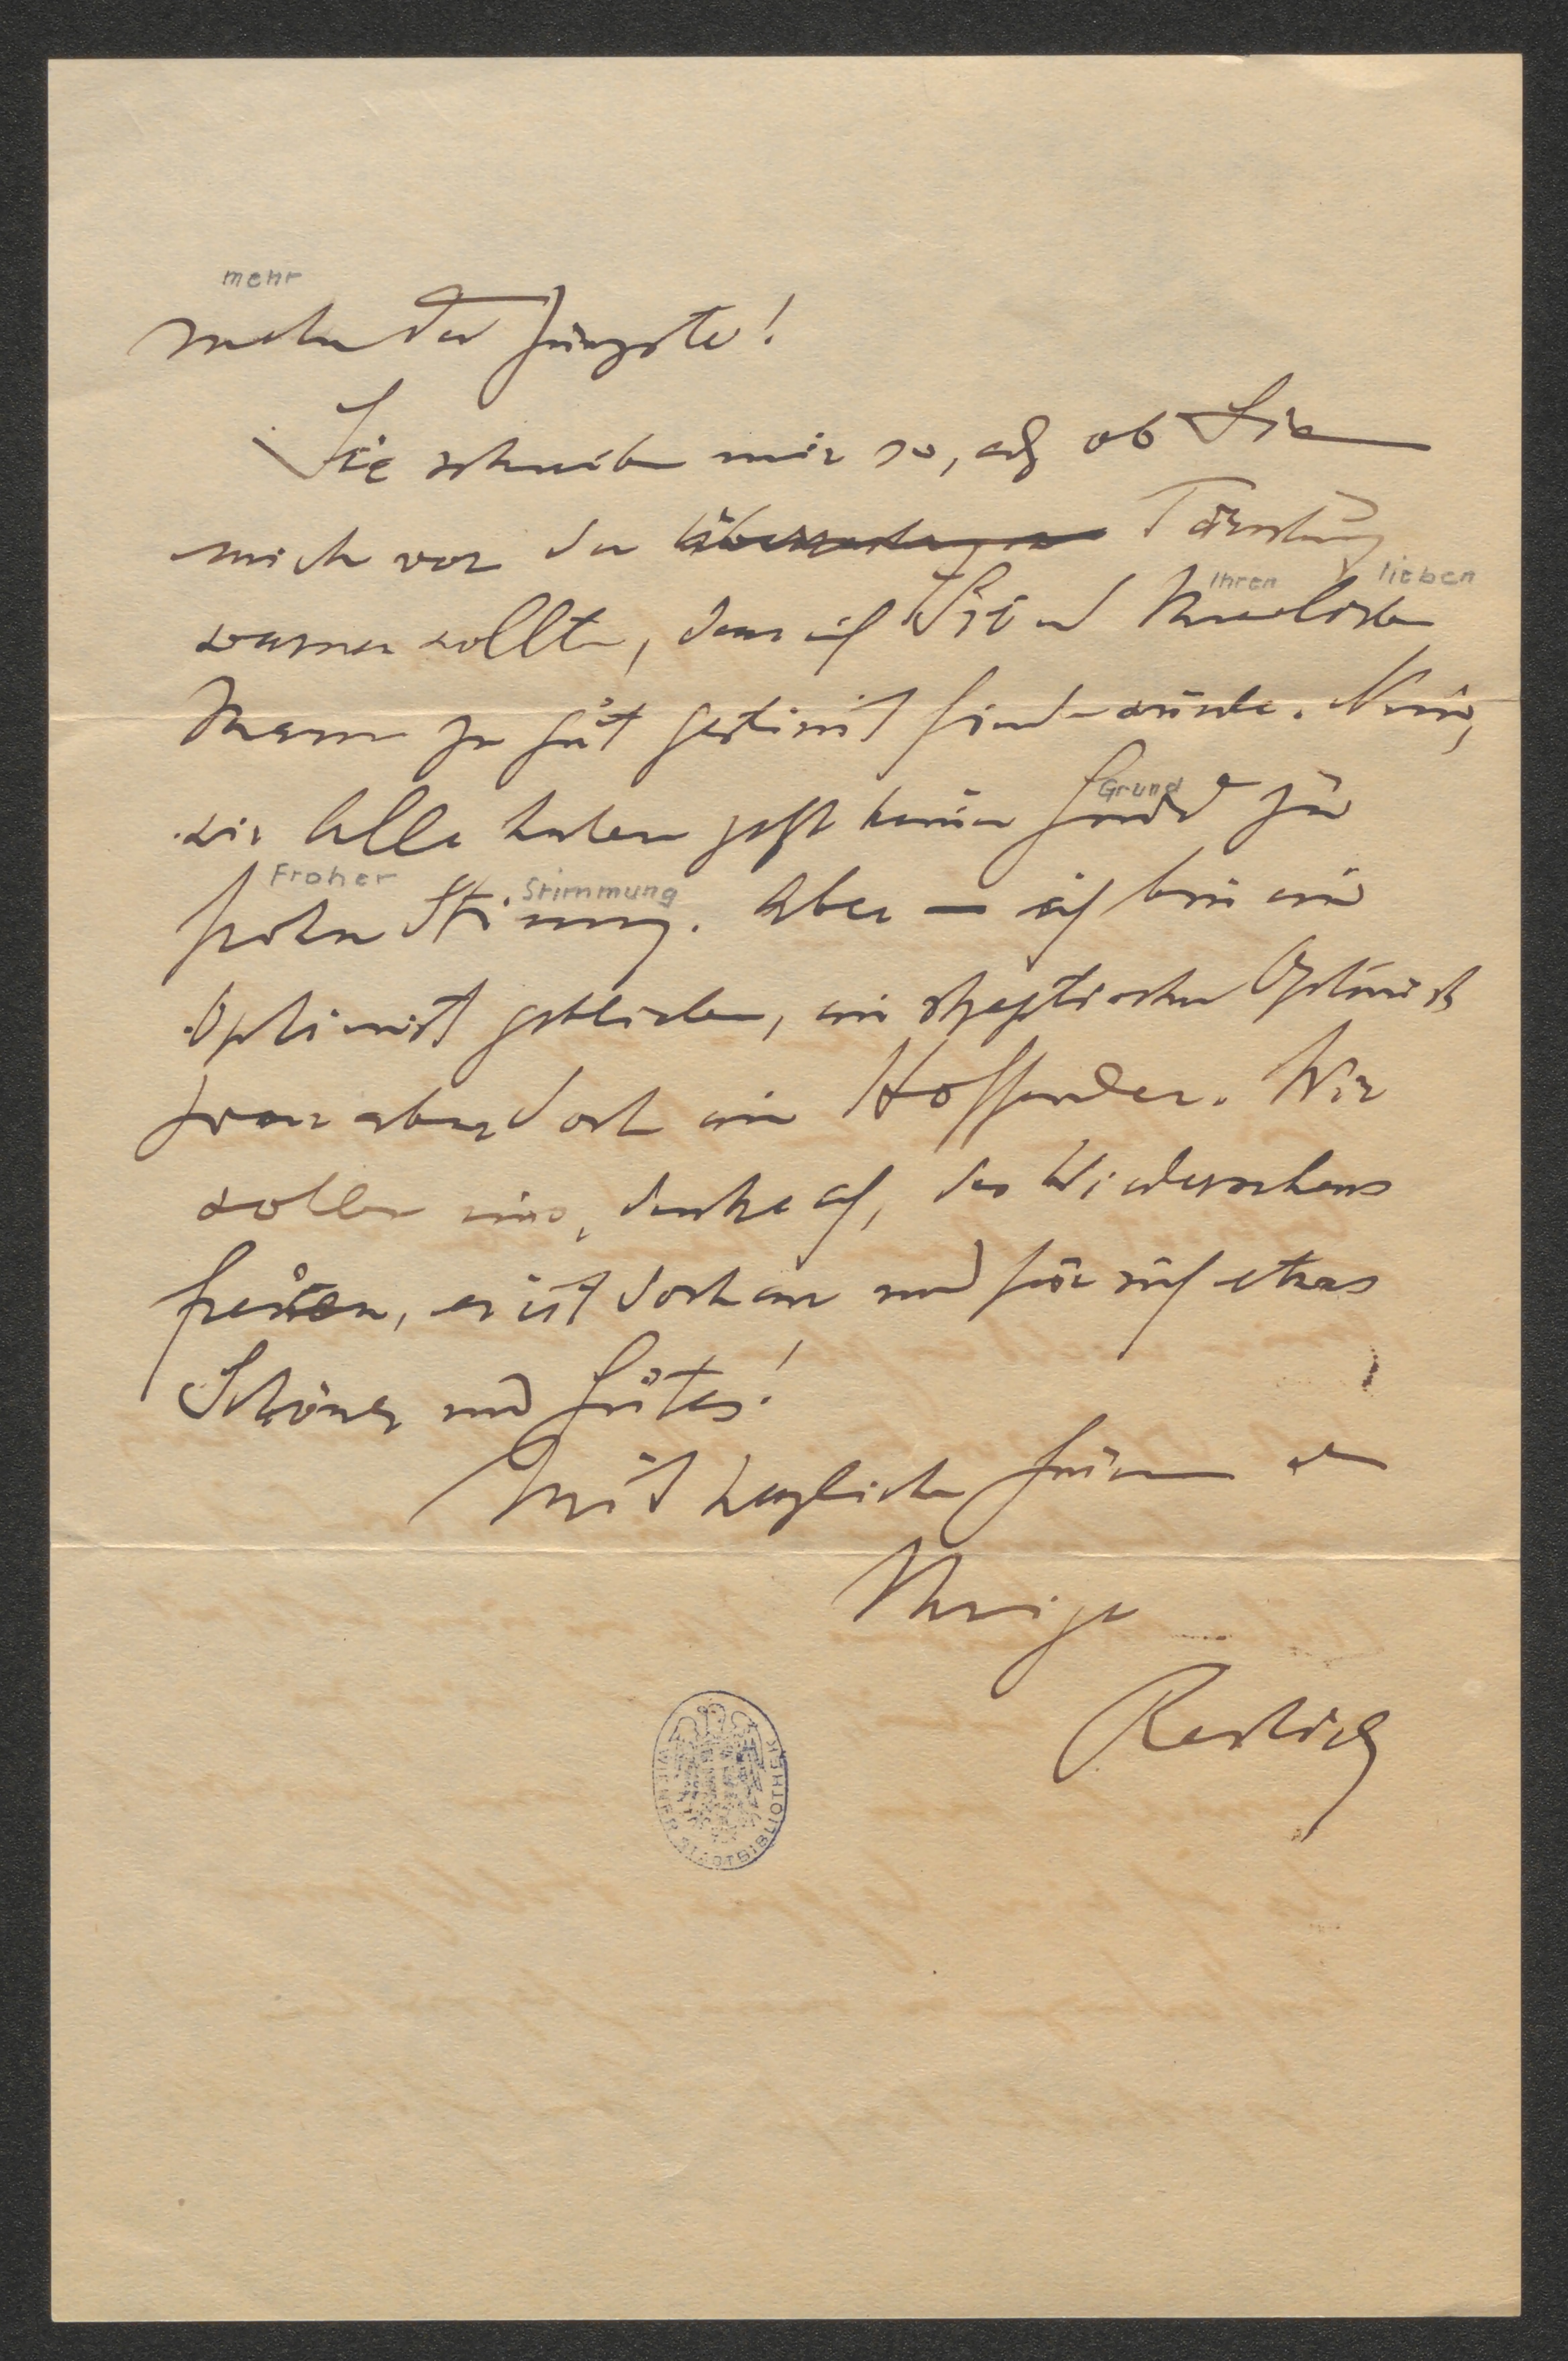 mehr
mehr der Jüngste!
Sie schreiben mir so, als ob Sie
mich vor der Täuschung
Ihren lieben
warnen wollten, dass ich Sie und Ihren lieben
Mann zu gut gestimt finden würde. Nun,
Grund
wir Alle haben jetzt keinen Grund zu
Froher Stimmung
froher Stimmung. Aber — ich bin ein
Optimist geblieben, ein skeptischer Optimist
zwar aber doch ein Hoffender. Wir
wollen uns, denke ich, des Wiedersehens
freuen, es ist doch an und für sich etwas
Schönes und Gutes!
Mit herzlichen Grüssen
Ihrige
Redlich
WIENER STADTBIBLIOTHEK